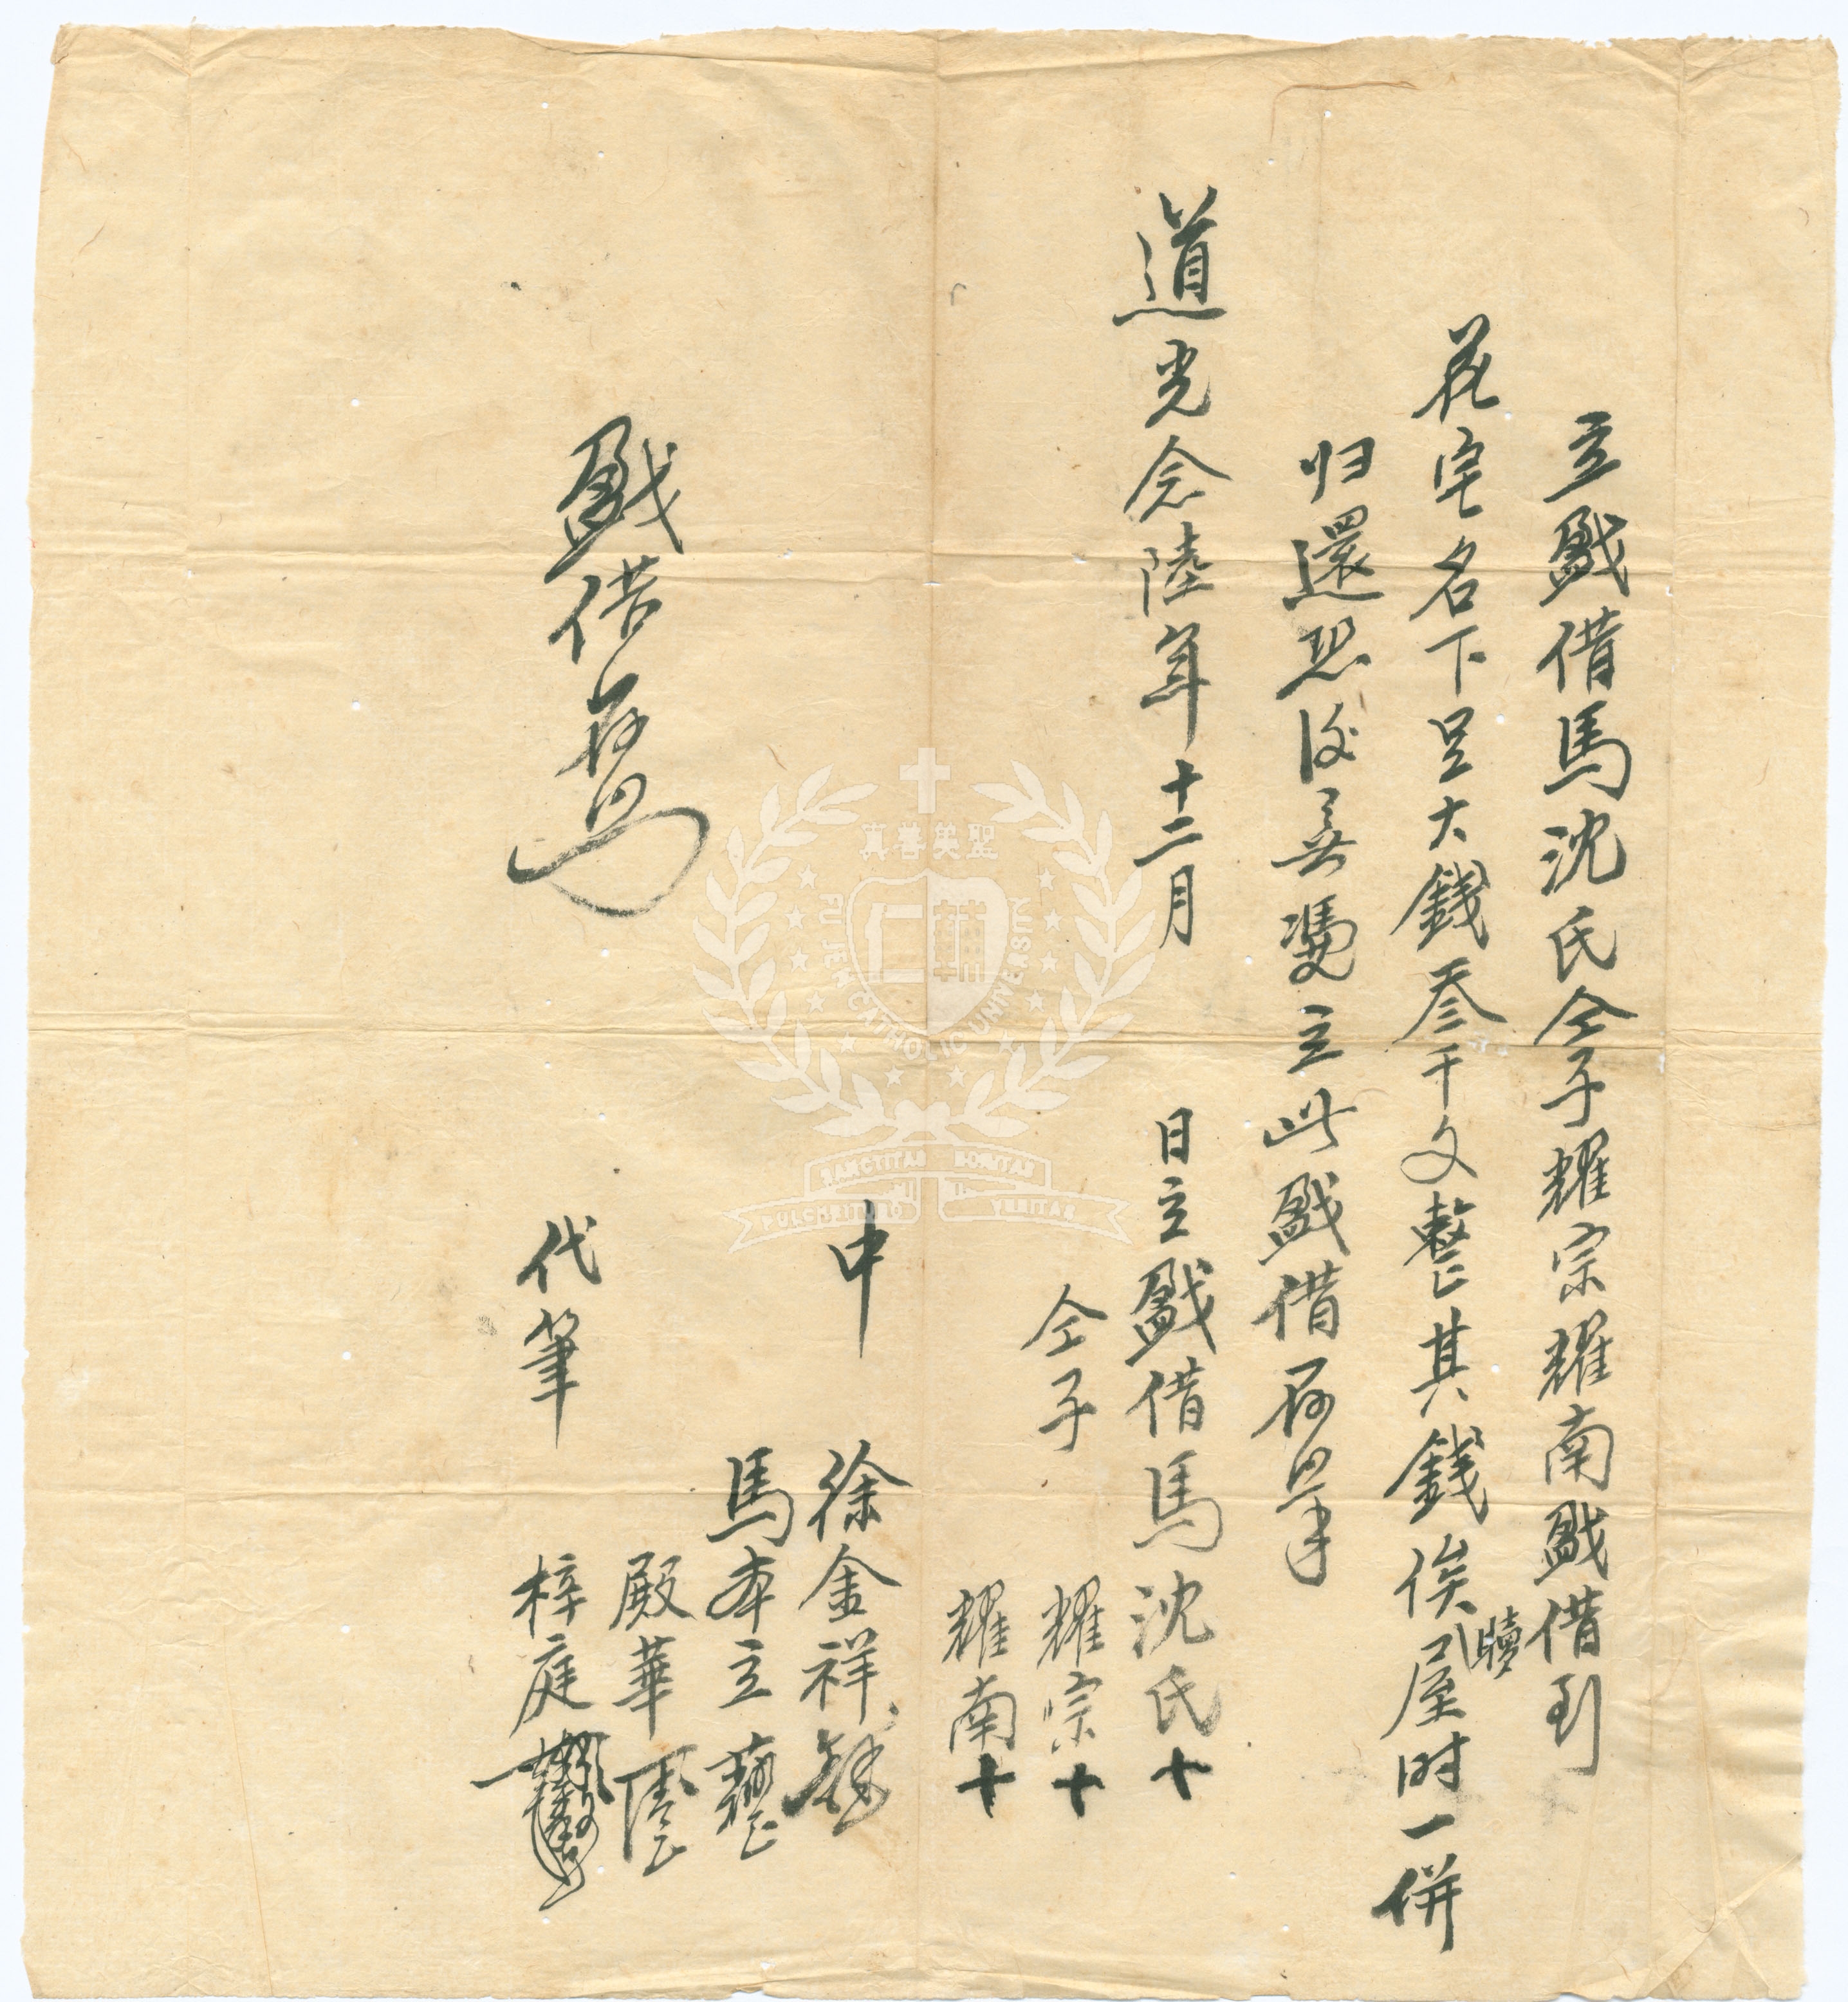 立戤借馬沈氏仝子耀宗耀南戤借到
宅名下足大錢叁千文整其錢俟贖屋时一併
归還恐後無憑立此戤借存
道光念陸年十二月 日立戤借馬沈氏十
仝子 耀宗十
耀南十
中 徐金祥
馬本立
殿華
代筆 梓庭
戤借存
聖美善真
FU JEN CATHOLIC UNIVERSITY
SANCTITAS BONITAS
PULCHRITUDO VERITAS